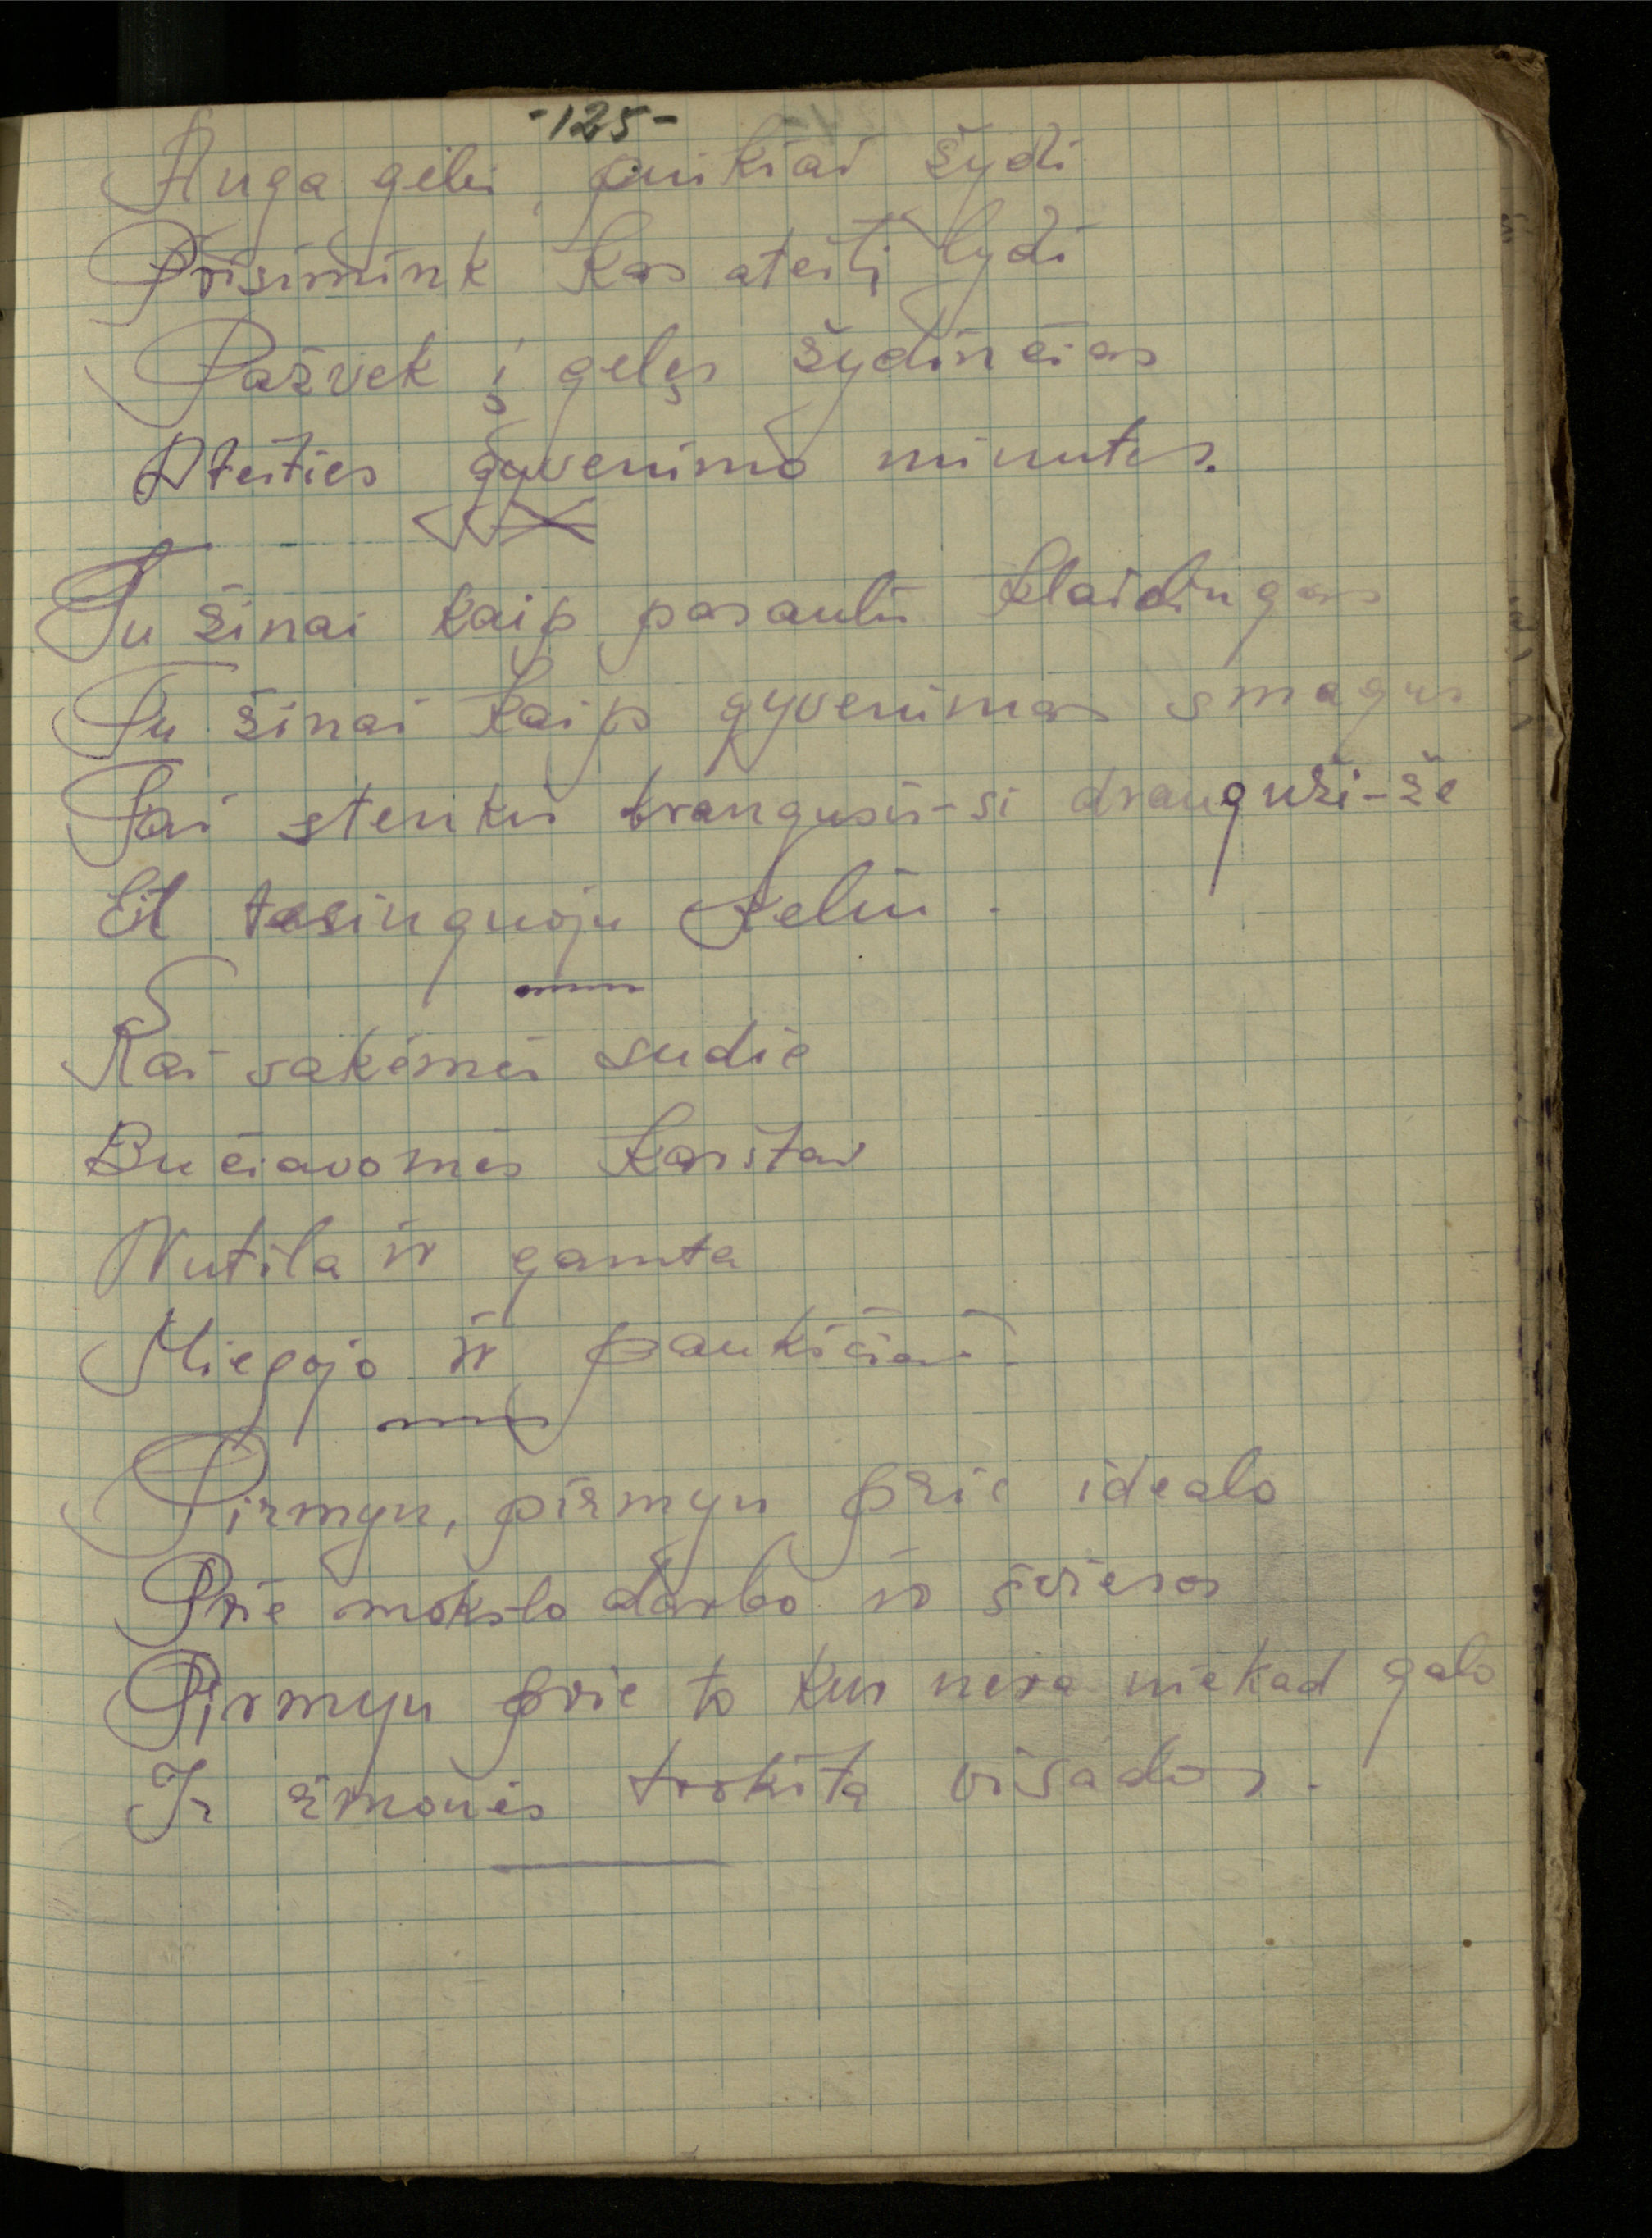 -125-
Auga gėlės, puikiai žydi
Prisimink kas ateitį lydi
Pažvek į gelęs žydinčias
Ateities gyvenimo minutes.
Tu žinai kaip pasaulis klaidingas
Tu žinai kaip gyvenimas smagus
Tai stenkis brangusis-si drauguži-že
Eit tesinguoju keliu.
Kai sakėmės sudie
Bučiavomės karštai
Nutila ir gamta
Miegojo ir paukščiai.
Pirmyn, pirmyn prie idealo
Prie mokslo darbo ir šviesos
Pirmyn prie to kur nera niekad galo
Ir žmonės trokšta visados.